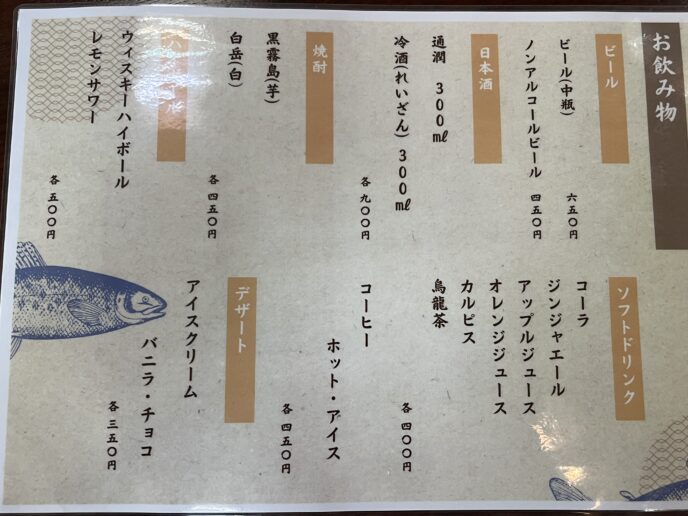 お飲み物
ビール
ビール(中瓶)
六五〇円
ノンアルコールビール
四五〇円
日本酒
通潤 300㎖
冷酒(れいざん) 300㎖
各 九〇〇円
焼酎
黒霧島(芋)
白岳(白)
各 四五〇円
ウィスキーハイボール
レモンサワー
各 五〇〇円
ソフトドリンク
コーラ
ジンジャエール
アップルジュース
オレンジジュース
カルピス
烏龍茶
各 四〇〇円
コーヒー
ホット・アイス
各 四五〇円
デザート
アイスクリーム
バニラ・チョコ
各 三五〇円